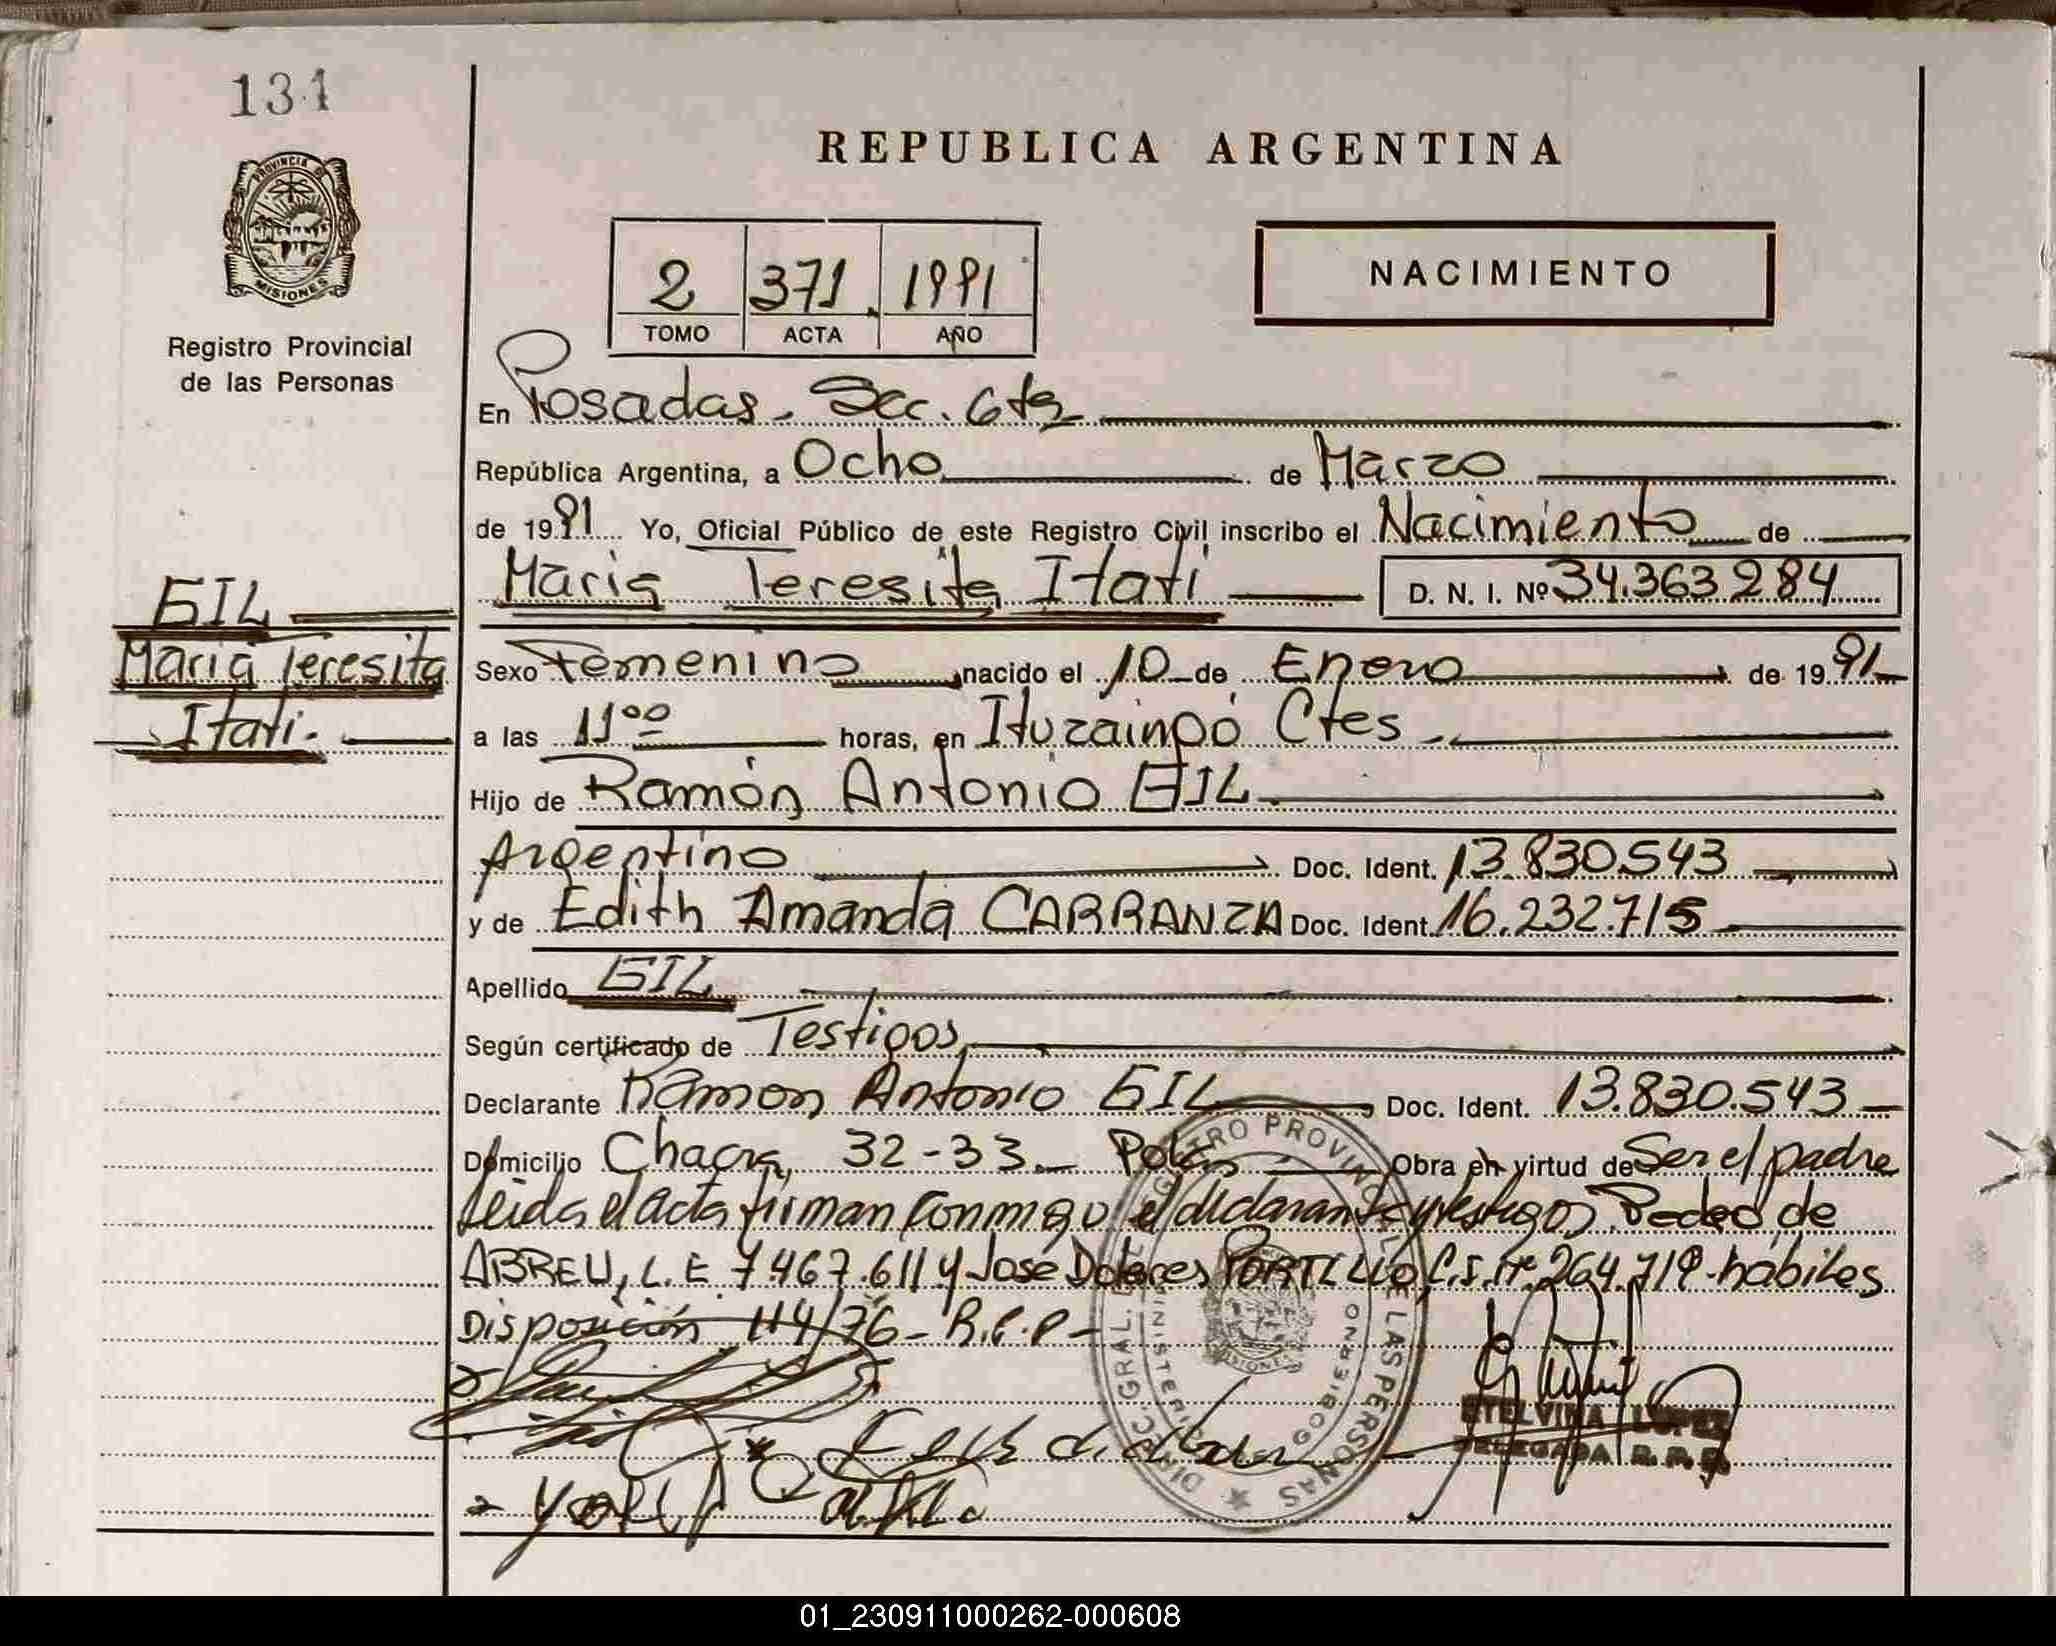 134
REPUBLICA ARGENTINA
PROVINCIA DE
MISIONES
NACIMIENTO
2 371 1991
TOMO ACTA AÑO
Registro Provincial
de las Personas
En Posadas - Sec. 6ta
República Argentina, a Ocho de Marzo
de 1991 Yo, Oficial Público de este Registro Civil inscribo el Nacimiento de
Maria Teresita Itati D. N. I. Nº 34.363.284
GIL
Maria Teresita
Itati.
Sexo Femenino nacido el 10 de Enero de 1991
a las 11 00 horas, en Ituzaingó Ctes -
Hijo de Ramón Antonio GIL
Argentino Doc. Ident. 13.830.543
y de Edith Amanda CARRANZA Doc. Ident. 16.232.715
Apellido GIL
Según certificado de Testigos
Declarante Ramon Antonio GIL Doc. Ident. 13.830.543
Domicilio Chacra 32-33 - Pdas Obra en virtud de Ser el padre
leida el acta firman conmigo el declarante y testigos Pedro de
ABREU, L.E 7.467.611 y José Dolores PORTILLO, C.I. Nº 264.719 - hábiles
Disposición 114/76 - R.P.P -
DIREC. GRAL. REGISTRO PROVINCIAL DE LAS PERSONAS
MINISTERIO GOBIERNO
MISIONES
ETELVINA LOPEZ
DELEGADA R.P.P.
01_230911000262-000608